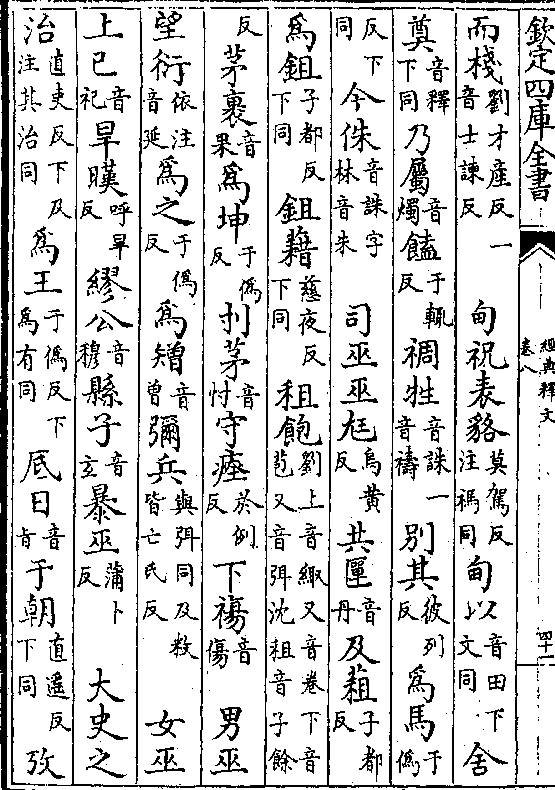 欽定四庫全書 經典釋文卷八 四十一
而棧劉才產反一音士諫反 甸祝表貉莫駕反注禡同甸以音田下文同舍
奠音釋下同乃屬音燭饁于輒反禂牲音誅一音禱別其彼列反為馬于偽
反下同今侏音誅字林音朱 司巫巫尪烏黄反共匰音丹及蒩子都反
為鉏子都反下同鉏藉慈夜反下同租飽劉上音緅又音卷下音苞又音弭沈租音子餘
反茅裹音果為坤于偽反刌茅音忖守瘞於例反下禓音傷 男巫
望衍依注音延為之于偽反為矰音曾彌兵與弭同及敉皆亡民反 女巫
上巳音祀旱暵呼旱反繆公音穆縣子音玄暴巫蒲卜反 大史之
治直史反下及注其治同為王于偽反下為有同厎日音旨于朝直遙反下同攷